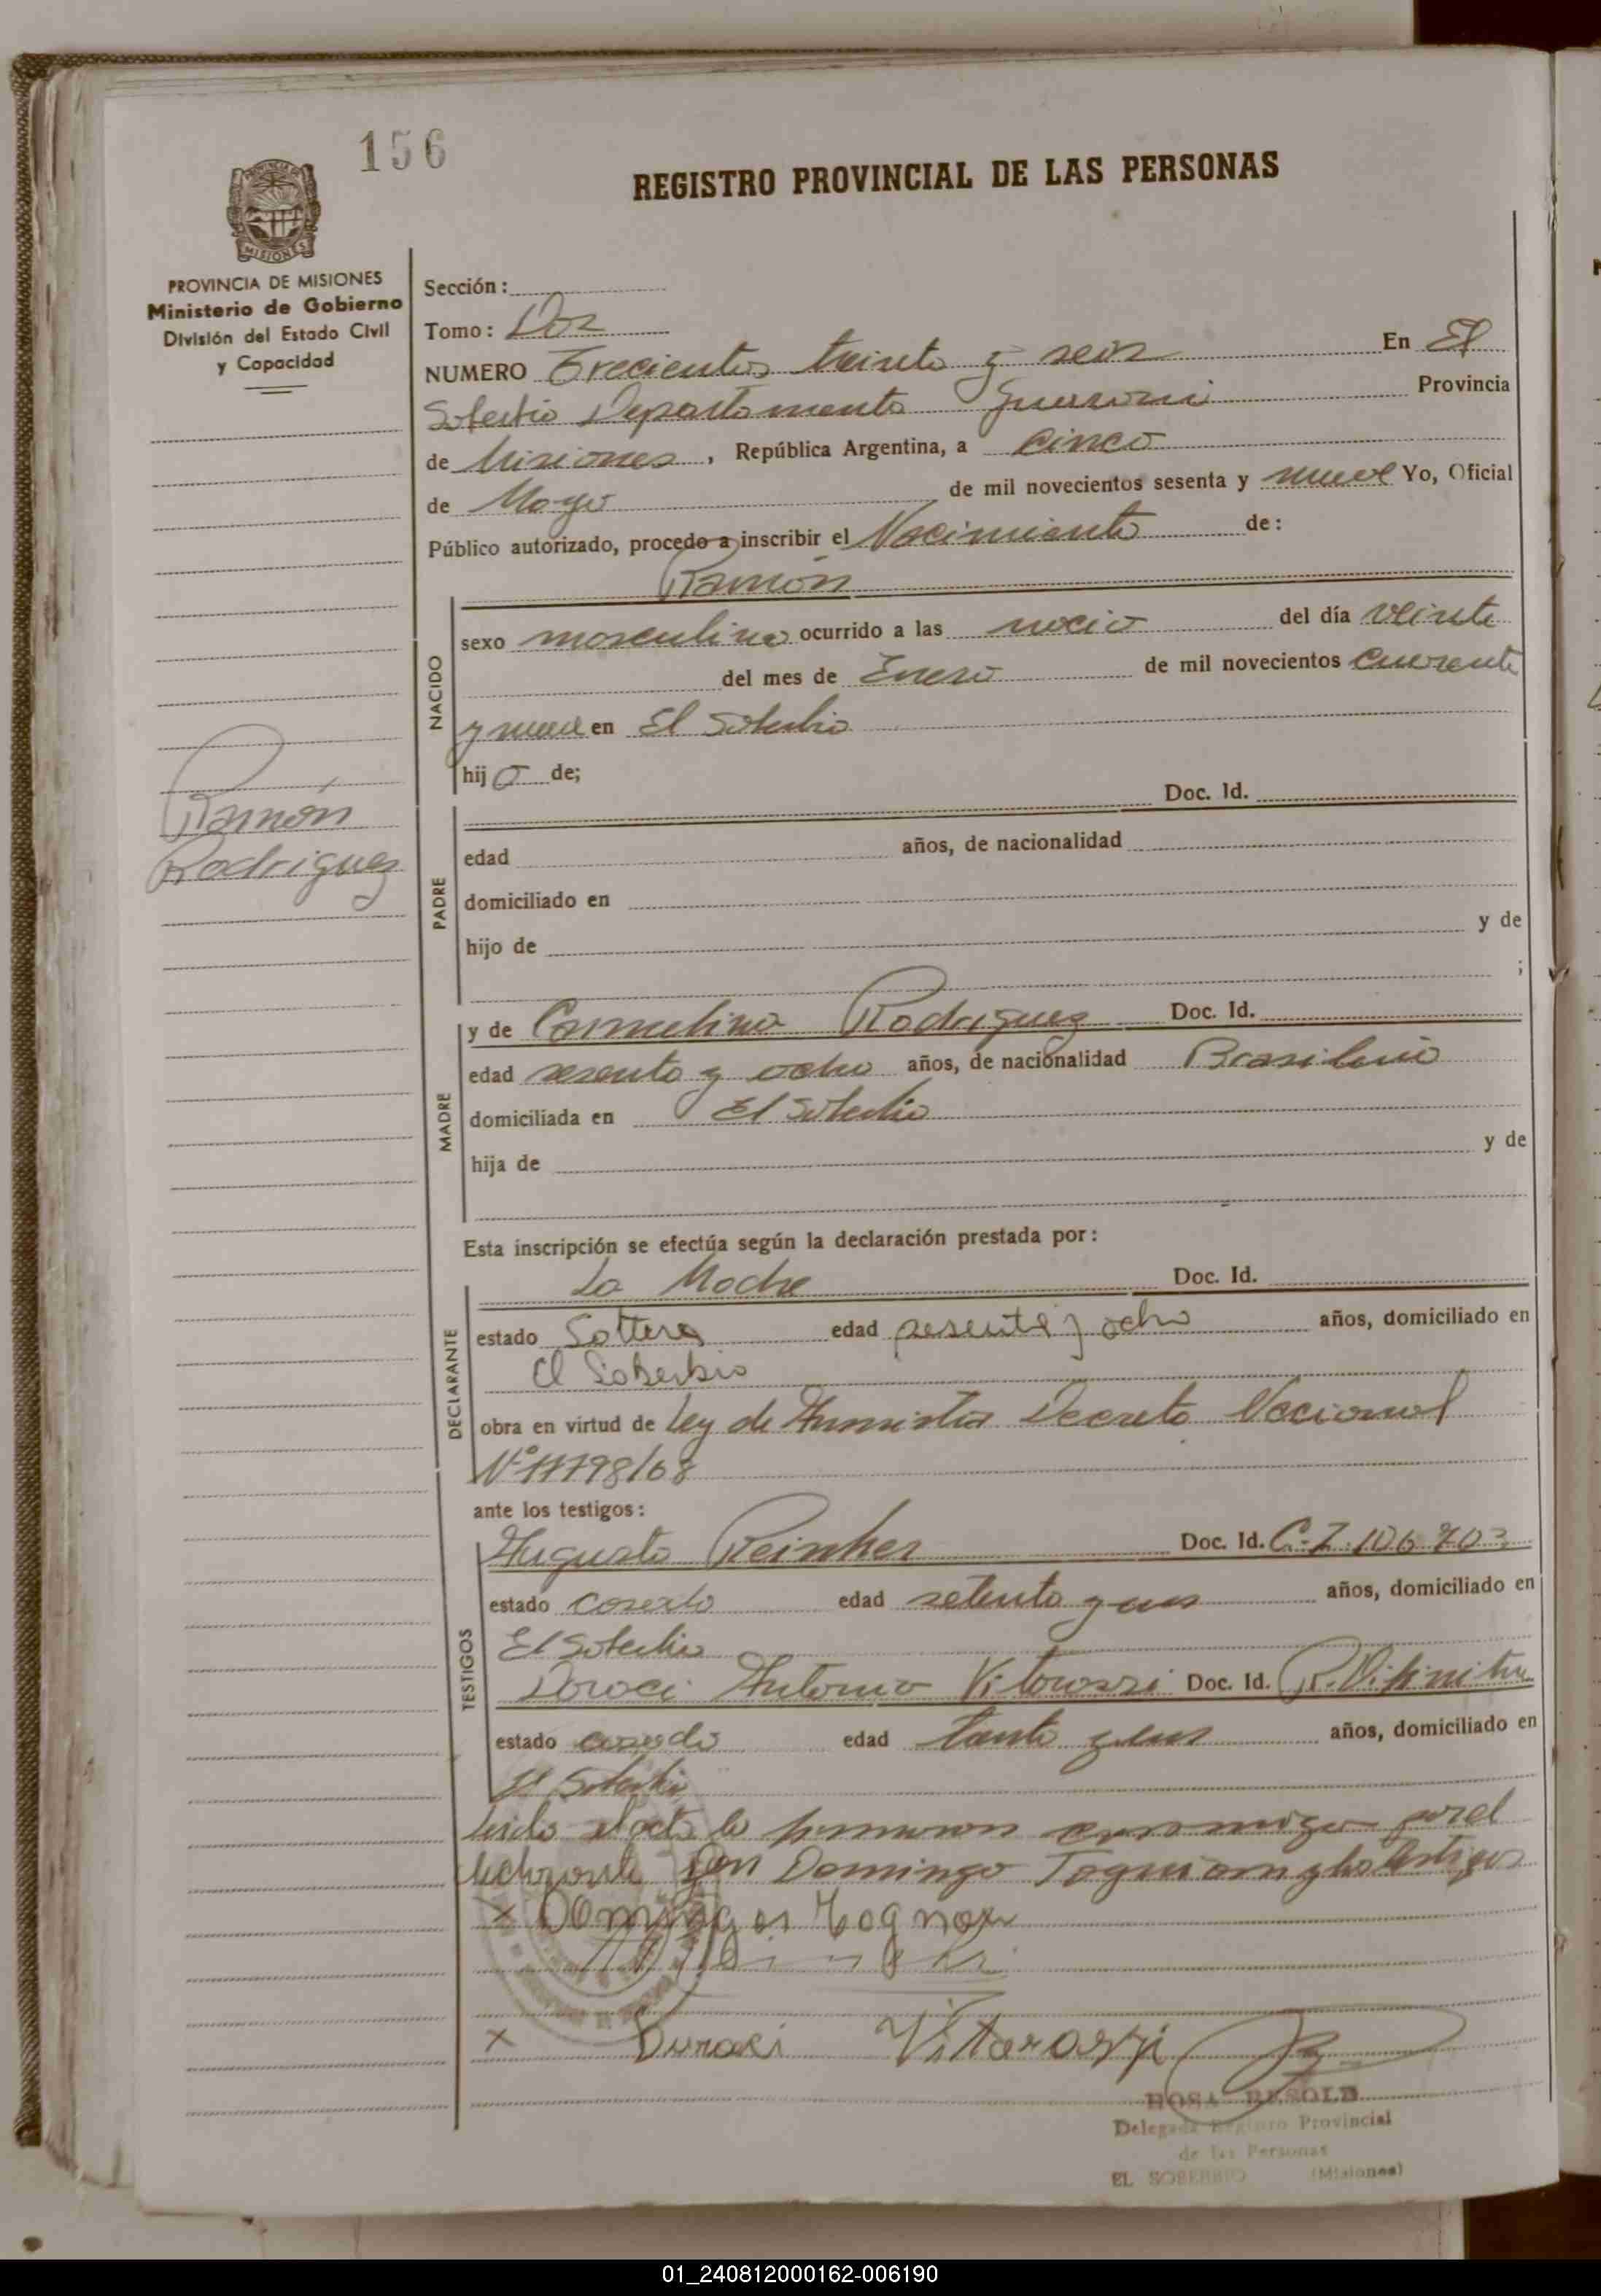 156
REGISTRO PROVINCIAL DE LAS PERSONAS
PROVINCIA DE MISIONES
Ministerio de Gobierno
División del Estado Civil
y Capacidad
Sección:
Tomo: Dos
NUMERO Trecientos treinta y seis En El
Soberbio Departamento Guarani Provincia
de Misiones, República Argentina, a Cinco
de Mayo de mil novecientos sesenta y nueve Yo, Oficial
Público autorizado, procedo a inscribir el Nacimiento de:
Ramón
NACIDO
sexo masculino ocurrido a las nocio del día veinte
del mes de Enero de mil novecientos cuarenta
y nueve en El Soberbio
hijo de;
Ramón
Rodriguez
PADRE
Doc. Id.
edad años, de nacionalidad
domiciliado en
hijo de y de
;
MADRE
y de Carmelina Rodriguez Doc. Id.
edad sesenta y ocho años, de nacionalidad Brasilera
domiciliada en El Soberbio
hija de y de
Esta inscripción se efectúa según la declaración prestada por:
DECLARANTE
La Madre Doc. Id.
estado Soltera edad sesenta y ocho años, domiciliado en
El Soberbio
obra en virtud de Ley de Amnistia Decreto Nacional
Nº 17798/68
ante los testigos:
TESTIGOS
Augusto Reinher Doc. Id. C.I. 106.703
estado casado edad setenta y un años, domiciliado en
El Soberbio
Doraci Antonio Vitorossi Doc. Id.
estado casado edad años, domiciliado en
El Soberbio
Leido el acta la firmaron conmigo por el
declarante Don Domingo y los testigos
x Domingos Tognon
x Duraci Vitarossi
ROSA BESOLD
Delegada Registro Provincial
de las Personas
EL SOBERBIO (Misiones)
01_240812000162-006190